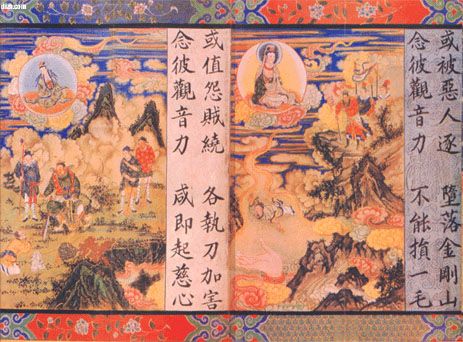 或被惡人逐　墮落金剛山
念彼觀音力　不能損一毛
或值怨賊繞　各執刀加害
念彼觀音力　咸即起慈心